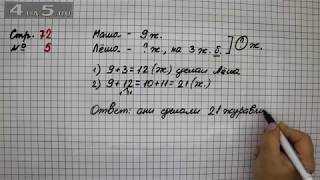 4 as 5.ru
Стр. 72
№ 5
Маша - 9 ж.
Лёша - ? ж., на 3 ж. б.
? ж.
1) 9 + 3 = 12 (ж.) сделал Лёша
2) 9 + 12 = 10 + 11 = 21 (ж.)
Ответ: они сделали 21 журавли